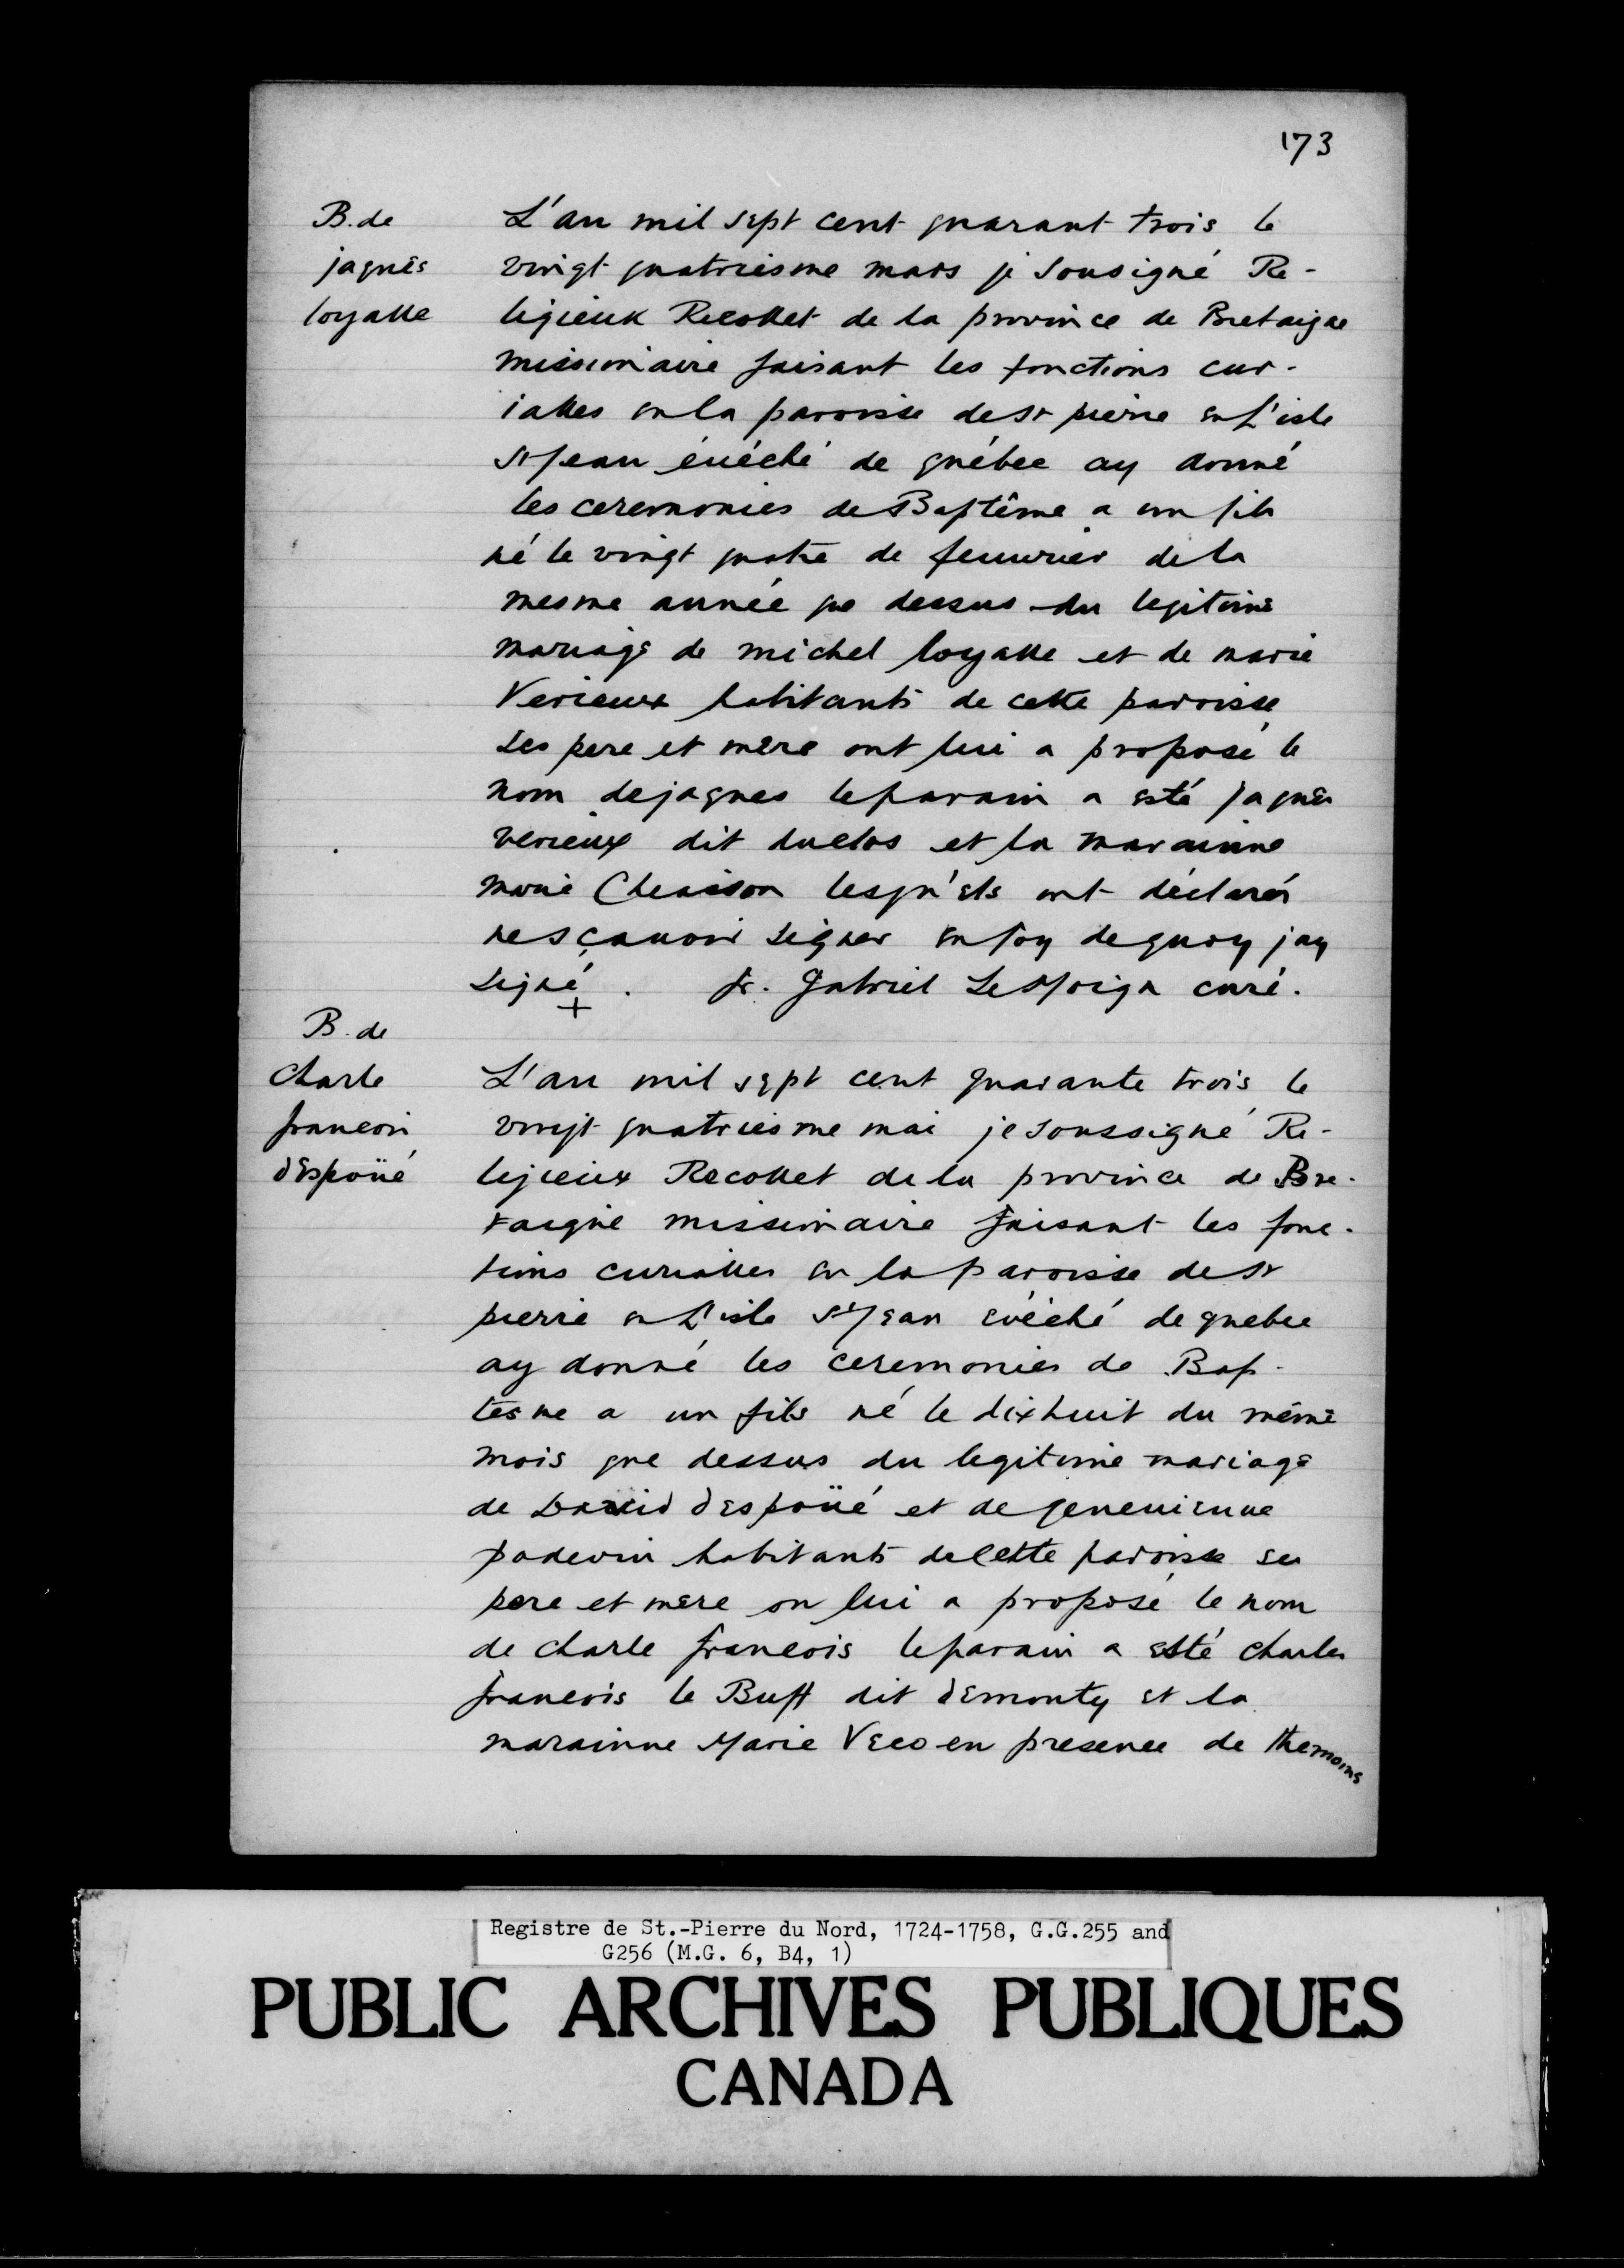 173
B. de
jaques
loyalle
L'an mil sept cent quarant trois le
vingt quatriesme mars je sousigné Re-
ligieux Recollet de la province de Bretaigne
missionaire faisant les fonctions cur-
ialles en la paroisse de st pierre en L'isle
st jean évéché de québec ay donné
les ceremonies de Baptême a un fils
né le vingt quatre de feuurier de la
mesme année que dessus du legitime
mariage de michel loyalle et de marie
Verieux habitants de cette paroisse
Ses pere et mere ont lui a proposé le
nom de jaques le parain a esté jaques
verieux dit duclos et la marainne
marie Cheaison lesquels ont déclarés
ne sçauoir signer en foy de quoy jay
signé. fr. Gabriel LeMoign curé.
+
B. de
Charle
francois
dEspoüé
L'an mil sept cent quarante trois le
vingt quatriesme mai je soussigné Re-
ligieux Recollet de la province de Bre-
taigne missionaire faisant les fonc-
tions curialles en la paroisse de st
pierre en L'isle st jean évéché de quebec
ay donné les ceremonies de Bap-
tesme a un fils né le dixhuit du même
mois que dessus du legitime mariage
de David dEspoüé et de geneuienne
padevin habitants de Cette paroisse ses
pere et mere on lui a proposé le nom
de Charle francois le parain a esté Charles
francois le Buff dit dEmonty et la
marainne Marie Veco en presence de themoins
Registre de St.-Pierre du Nord, 1724-1758, G.G.255 and
G256 (M.G. 6, B4, 1)
PUBLIC ARCHIVES PUBLIQUES
CANADA